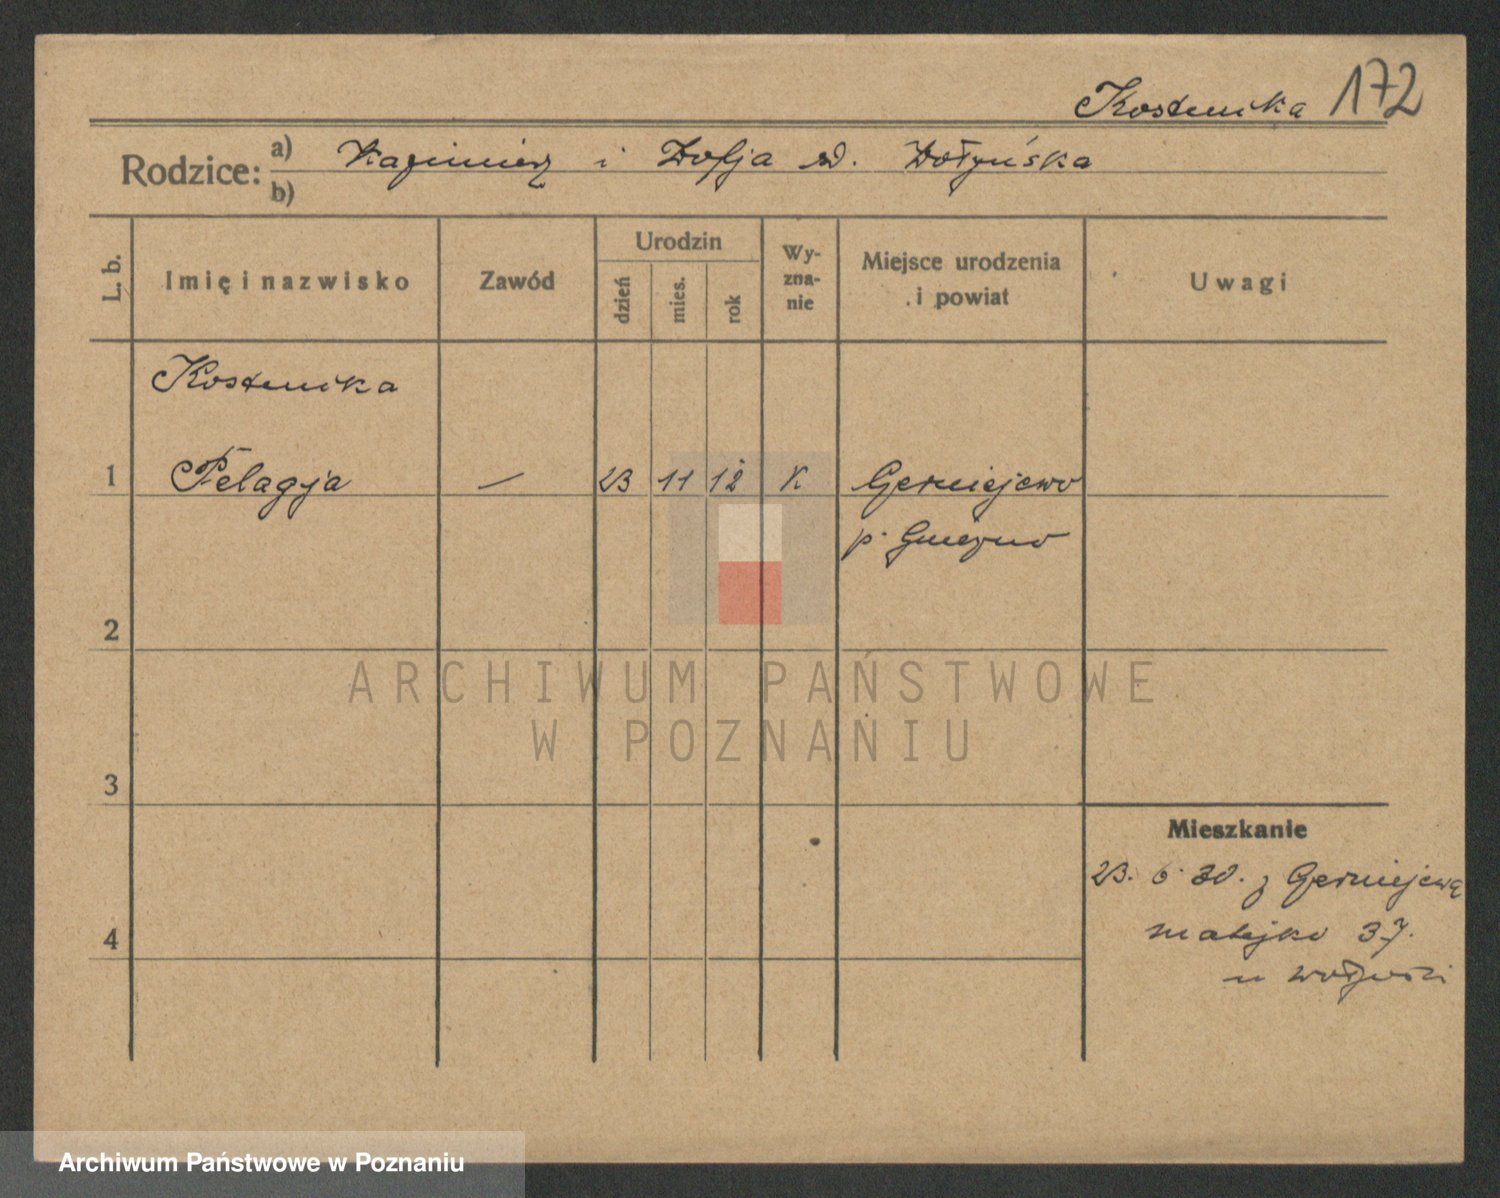 Kostenika 172
Rodzice: a) Kazimierz i Zofja zd. Dołyńska
b)
L. b.
Imię i nazwisko
Zawód
Urodzin
dzień
mies.
rok
Wy-
zna-
nie
Miejsce urodzenia
i powiat
Uwagi
Kostenika
1 Pelagja — 23 11 12 K Gerniejewo
p. Gniezno
2
3
4
Mieszkanie
23. 6. 30. z Gerniejewa
Matejko 37.
u
ARCHIWUM PAŃSTWOWE
W POZNANIU
Archiwum Państwowe w Poznaniu